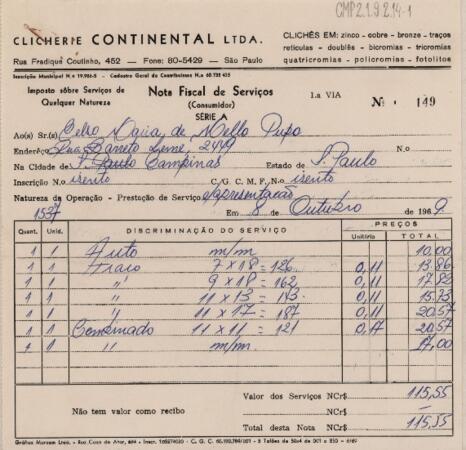 CMP2.1.9.2.14-1
CLICHERIE CONTINENTAL LTDA.
Rua Fradique Coutinho, 452 — Fone: 80-5429 — São Paulo
CLICHÊS EM: zinco - cobre - bronze - traços
reticulas - doublês - bicromias - tricromias
quatricromias - policromias - fotolitos
Inscrição Municipal N.o 19.986-5 - Cadastro Geral de Contribuintes N.o 60.732.635
Imposto sôbre Serviços de
Qualquer Natureza
Nota Fiscal de Serviços
(Consumidor)
SÉRIE A
1.a VIA
Nº 149
Ao(s) Sr.(s) Celso Maria de Mello Pupo
Endereço Rua Barreto Leme, 2449
Na Cidade de S. Paulo Campinas Estado de S. Paulo
Inscrição N.o isento C/G.C.M.F. N.o isento
Natureza da Operação - Prestação de Serviço Apresentação
1537 Em 8 de Outubro de 1969
Quant. Unid. DISCRIMINAÇÃO DO SERVIÇO PREÇOS
Unitário TOTAL
1 1 Auto m/m 10,00
1 1 Traço 7 x 18 = 126 0,11 13,86
1 1 " 9 x 18 = 162 0,11 17,82
1 1 " 11 x 13 = 143 0,11 15,73
1 1 " 11 x 17 = 187 0,11 20,57
1 1 Combinado 11 x 11 = 121 0,17 20,57
1 1 " m/m. 17,00
Valor dos Serviços NCr$ 115,55
Não tem valor como recibo NCr$ —
Total desta Nota NCr$ 115,55